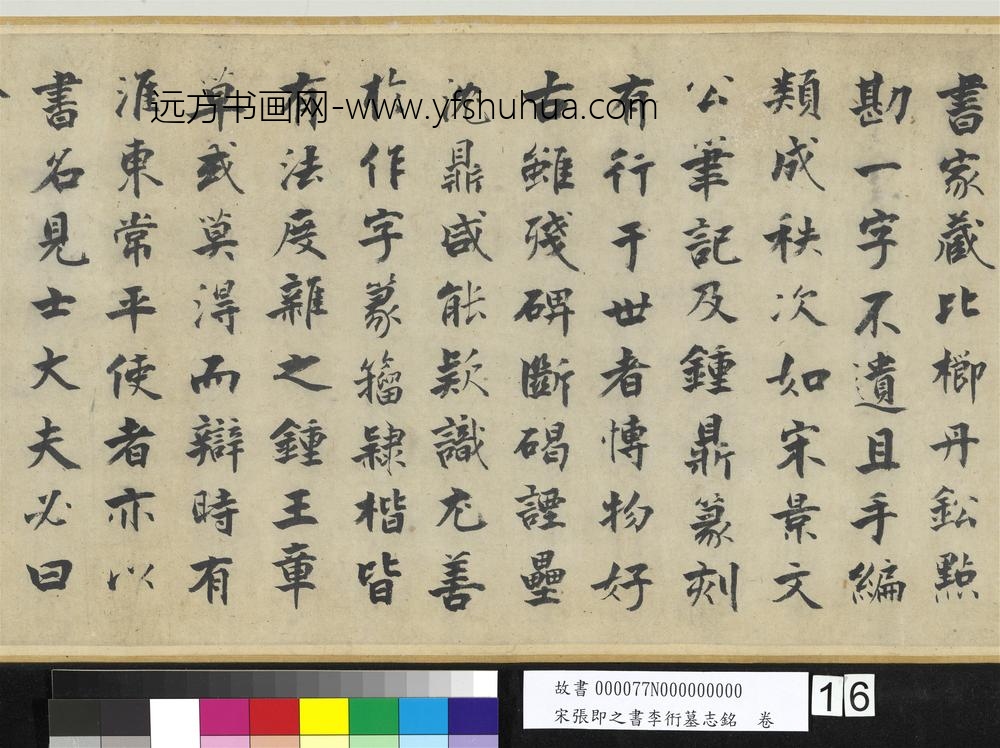 書家藏比櫛丹鈆點
勘一字不遺且手編
類成秩次如宋景文
公筆記及鍾鼎篆刻
有行于世者博物好
古雖殘碑斷碣譚罍
鼎咸能款識尤善
於作字篆籀隸楷皆
有法度雜之鍾王章
草或莫淂而辯時有
淮東常平使者亦以
書名見士大夫必曰
远方书画网-www.yfshuhua.com
故書 000077N000000000
宋張即之書李衎墓志銘 卷
16